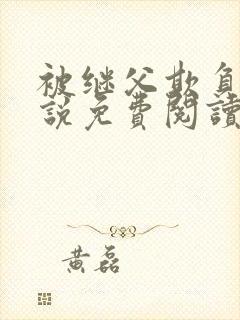 被继父欺负
說免費閱讀
黄磊